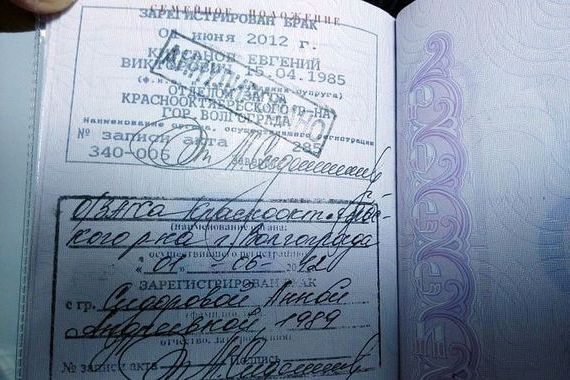 СЕМЕЙНОЕ ПОЛОЖЕНИЕ
ЗАРЕГИСТРИРОВАН БРАК
01 июня 2012 г.
ЕВГЕНИЙ
15.04.1985
ОТДЕЛ
КРАСНООКТЯБРЬСКОГО Р-НА
ГОР. ВОЛГОГРАДА
Наименование органа, осуществившего регистрации
№ записи акта 285
340-006
О/ЗАГСа Краснооктябрьс-
кого р-на г. Волгограда
(наименование органа,
осуществившего регистрацию)
"01" - 06 - 2012
ЗАРЕГИСТРИРОВАН БРАК
с гр. Сидоровой Анной
Андреевной, 1989
отчество, дата рождения
№ записи акта Подпись